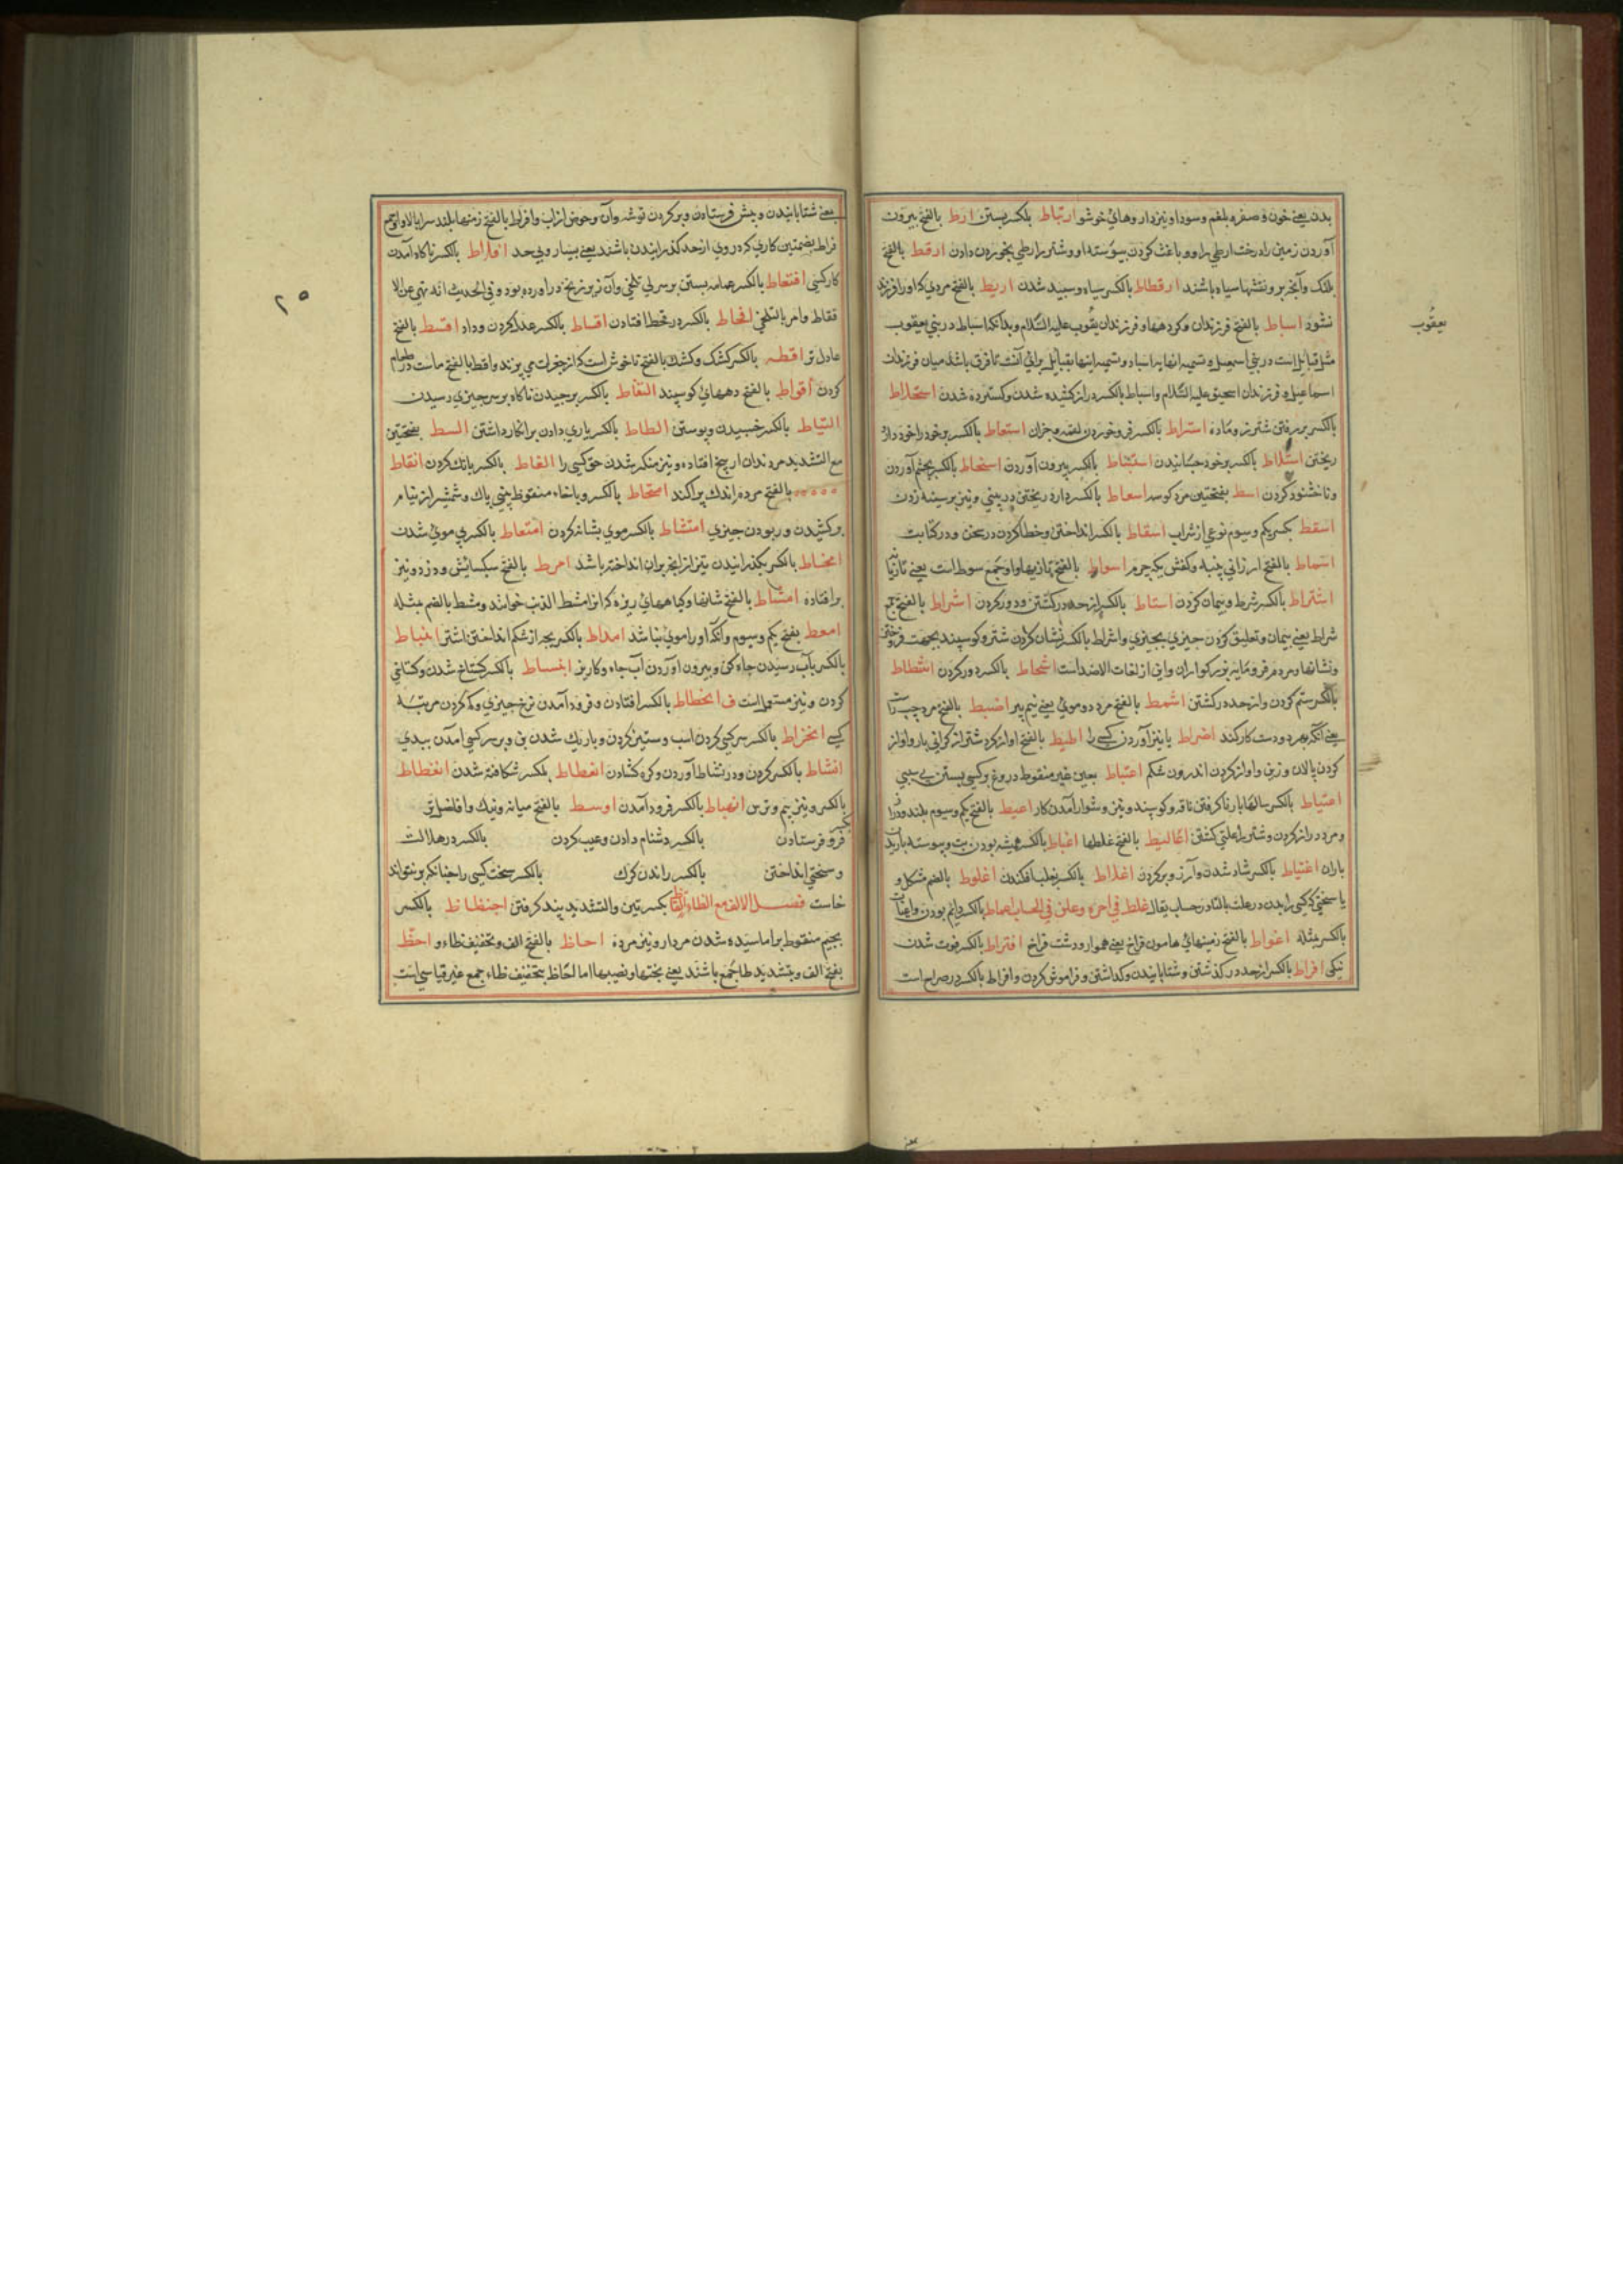 بدن یعنی خون و صفره بلغم وسودا ونیز دار وهائ خوشو ارتباط بلکسر بستن ارط بالفتح بیرون
آوردن زمین را درخت ارطي را وو باغت کردن بپوسته او وشتر را رطي بخوردن دادن ارقط بالفتح
پلنک وآنچه برو نقشها سیاه باشند ارقطاط بالکسر سیاه وسپید شدن اریط بالفتح مردي که او را فرزند
نشود اسباط بالفتح فرزندان وکروهها وفرزندان یعقوب علیه السلام وبدانکه اسباط در بني یعقوب
یعقوب
مثل قبایل است در بني اسمعیل و تسمیه انها به اسباط وتسمیه اینها بقبایل براي آنست تا فرق باشد میان فرزندان
اسماعیل و فرزندان اسحیق علیه السلام واسباط بالکسر دراز کشیده شدن وکسترده شدن استخلاط
بالکسر بررفتن شتر نر وماده استراط بالکسر فرو خوردن لقمه وجزان استعاط بالکسر بر خود دارو
ریختن استلاط بالکسر بر خود چسبانیدن استنباط بالکسر بیرون آوردن اسخاط بالکسر بخشم آوردن
وناخشنود کردن اسط بفتحتین مرد کوسه اسعاط بالکسر دارو ریختن در بیني ونیز بر سینه زدن
اسقط بکسر یکم وسیوم نوعي از شراب اسقاط بالکسر انداختن وخطا کردن در سخن ودر کتابت
اسماط بالفتح ارزاني پنبه وکفش یکه چرم اسواط بالفتح تازیها واو جمع سوط است یعنی تازیانه
اشتراط بالکسر شرط وپیمان کردن اشطاط بالکسر از حد در کشتن ودور کردن اشراط بالفتح جمع
شراط یعنی پیمان وتعلیق کردن چیزي بچیزي واشراط بالکسر نشان کردن شتر وکوسپند بجهت فروختن
ونشانها ومردم فرومایه وبزرکواران واین از لغات الاضداد است اشحاط بالکسر دور کردن اشطاط
بالکسر ستم کردن واز حد در کشتن اشمط بالفتح مرد دوموئ یعنی نیم پیر اضبط بالفتح مرد چپ راست
یعنی آنکه بهر دو دست کار کند اضراط بابتز آوردن کسی را اطیط بالفتح اواز کرد شتر از کراني بار واواز
کردن پالان وزین واواز کردن اندرون شکم اعتباط بعین غیر منقوط دروغ برکسي بستن بی سببي
اعتیاط بالکسر سالها بار ناکرفتن ناقه وکوسپند ونیز دشوار آمدن کار اعیط بالفتح یکم وسیوم بلند ودراز
ومرد دراز کردن وشتر را علتي کشتن اغالیط بالفتح غلطها اغباط بالکسر همیشه بودن تب وپیوسته باریدن
باران اغتباط بالکسر شاد شدن وآرزو بر کردن اغلاط بالکسر بغلط افکندن اغلوط بالضم مشکل و
یا سخني که کسي را بدو در غلط بالتاء در حساب یقال غلط في امره وغلت في الحساب اغماط بالکسر دایم بودن واغمات
بالکسر مثله اغواط بالفتح زمینهائ هامون فراخ یعنی هموار ودشت فراخ افتراط بالکسر فوت شدن
نیکي افراط بالکسر از حد در کذشتن وشتابانیدن وکذاشتن وفراموش کردن وافراط بالکسر در صراح است
یعنی شتابانیدن وپیش فرستادن وپر کردن توشه وآن وحوض از آب وافراط بالفتح زمینها بلند سر ایا لا واو جمع
فراط بضمتین کاري که دروی از حد کذرانیدن باشند یعنی بسیار وبي حد افلاط بالکسر ناکاه آمدن
کار کسي اقتعاط بالکسر عمامه بستن بر سر بي تلحي وآن زیر زنخ در اورده بود وفي الحدیث انه نهي عن الا
قتعاط وامر بالتلحي اقحاط بالکسر در قحط افتادن اقساط بالکسر عدل کردن وداد اقسط بالفتح
عادل تر اقطه بالکسر کشک وکشک بالفتح ناخوش است که از جغرات مي پزند واقط بالفتح ماست در طعام
کردن اقواط بالفتح دههائ کوسپند التقاط بالکسر برچیدن ناکاه بر سر چیزي رسیدن
التیاط بالکسر چسپیدن وپوستن الطاط بالکسر یاري دادن بر انکار داشتن السط بفتحتین
مع التشدید مرد دندان از بیخ افتاده ونیز منکر شدن حق کسي را الغاط بالکسر بانک کردن انقاط
بالفتح مرده اندک پراکند امتخاط بالکسر وباخاء منقوط بیني پاک وشمشیر از نیام
برکشیدن وربودن چیزي امتشاط بالکسر موي بشانه کردن امتعاط بالکسر بي موئ شدن
امخاط بالکسر بکذرانیدن تیر از آنچه بران انداخته باشد امرط بالفتح سبکساریش ودزد ونیز
پر افتاده امشاط بالفتح شانها وکیاههائ ریزه که انرا مشط الذئب خوانند ومشط بالضم مثله
امعط بفتح یکم وسیوم وآنکه اورا موئ نباشد املاط بالکسر بچه از شکم انداختن اشتر انباط
بالکسر بآب رسیدن چاه کن وبیرون اوردن آب چاه وکاریز انبساط بالکسر کستاخ شدن وکستاخي
کردن ونیز مستعمل است ف انحطاط بالکسر افتادن وفرود آمدن نرخ چیزي وکم کردن مرتبه
کسی انخراط بالکسر سرکشي کردن اسب وستیز کردن وباریک شدن تن وبر سر کسي آمدن ببدي
انشاط بالکسر کردن ودر نشاط آوردن وکره کشادن انعطاط بلکسر شکافته شدن انغطاط
بالکسر ونیز بیم وترس انهباط بالکسر فرود آمدن اوسط بالفتح میانه ونیک وافضل تر
فرو فرستادن بالکسر دشنام دادن وعیب کردن بالکسر در هلاکت
وسختي انداختن بالکسر راندن کرک بالکسر سخت کسي را چنانکه بر نتواند
خاست فصل الالف مع الظاء بکسرتین والتشدید پند کرفتن اجنظاظ بالکسر
بجیم منقوط بر اماسیده شدن مردار ونیز مرده احاظ بالفتح الف وتخفیف ظاء و احظ
بفتح الف وبتشدید ظا جمع باشند یعنی بختها ونصیبها اما لحاظ بتخفیف ظاء جمع غیر قیاسي است
۲۵